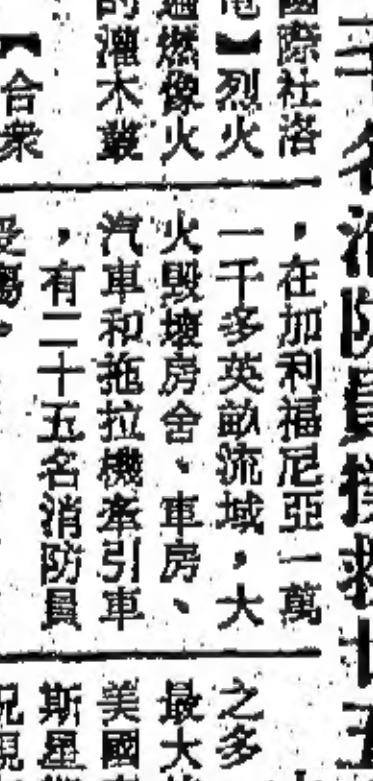 千名消防員撲救廿五
國際社洛
電】烈火
燃像火
灌木叢
【合衆
，在加利福尼亞一萬
一千多英畝流域，大
火毀壞房舍、車房、
汽車和拖拉機牽引車
，有二十五名消防員
受傷。
之多
最大
美國
斯星
況現